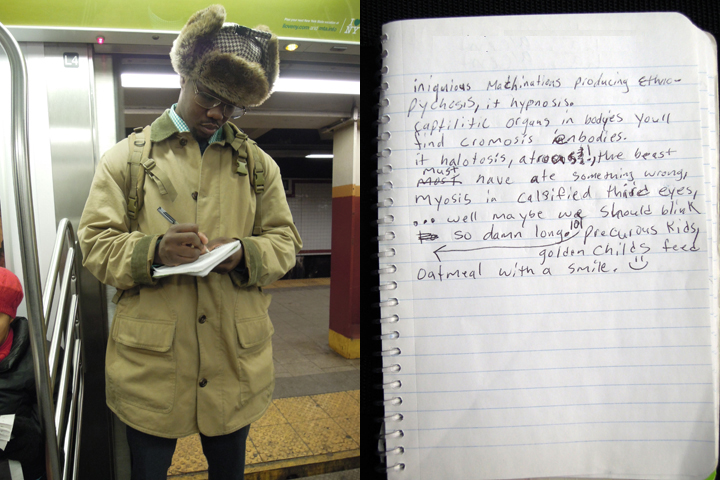 L4
iniquious Machinations producing Ethnic-
Pychesis, it hypnosis.
Captilitic organs in bodyes you'll
find cromosis enbodies.
it halotosis, the beast
must
have ate something wrong,
myosis in calsified third eyes,
... well maybe we should blink
so damn long. lol precurous kids,
golden childs feed
oatmeal with a smile.